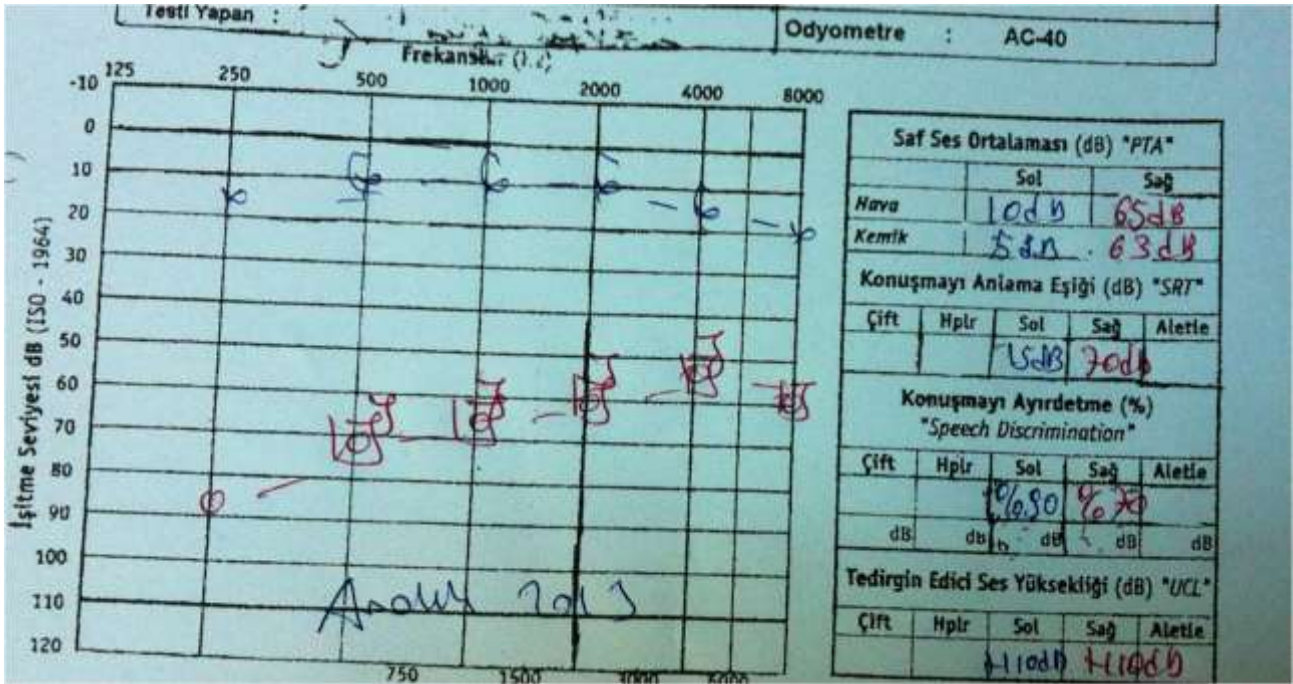 Testi Yapan :
Odyometre : AC-40
Frekanslar
125 250 500 1000 2000 4000 8000
-10
0
10
20
30
40
50
60
70
80
90
100
110
120
İşitme Seviyesi dB (ISO - 1964)
Aralık 2013
750 1500 3000 6000
Saf Ses Ortalaması (dB) "PTA"
Sol Sağ
Hava 10dB 65dB
Kemik 5dB 63dB
Konuşmayı Anlama Eşiği (dB) "SRT"
Çift Hplr Sol Sağ Aletle
15dB 70db
Konuşmayı Ayırdetme (%)
"Speech Discrimination"
Çift Hplr Sol Sağ Aletle
%90 %70
dB dB dB dB dB
Tedirgin Edici Ses Yüksekliği (dB) "UCL"
Çift Hplr Sol Sağ Aletle
+110dB +110dB